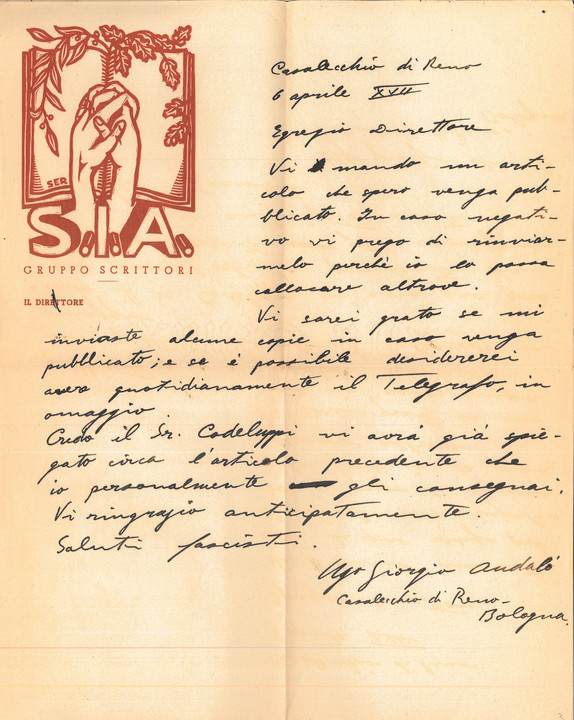 SER
S.I.A.
GRUPPO SCRITTORI
IL DIRETTORE
Casalecchio di Reno
6 aprile XVII
Egregio Direttore
Vi mando un arti-
colo che spero venga pub-
blicato. In caso negati-
vo vi prego di rinviar-
melo perchè io lo possa
collocare altrove.
Vi sarei grato se mi
inviaste alcune copie in caso venga
pubblicato; e se è possibile desidererei
avere quotidianamente il Telegrafo, in
omaggio.
Credo il Sr. Codeluppi vi avrà già spie-
gato circa l'articolo precedente che
io personalmente gli consegnai.
Vi ringrazio anticipatamente.
Saluti fascisti.
Ugo Giorgio Andalò
Casalecchio di Reno-
Bologna.